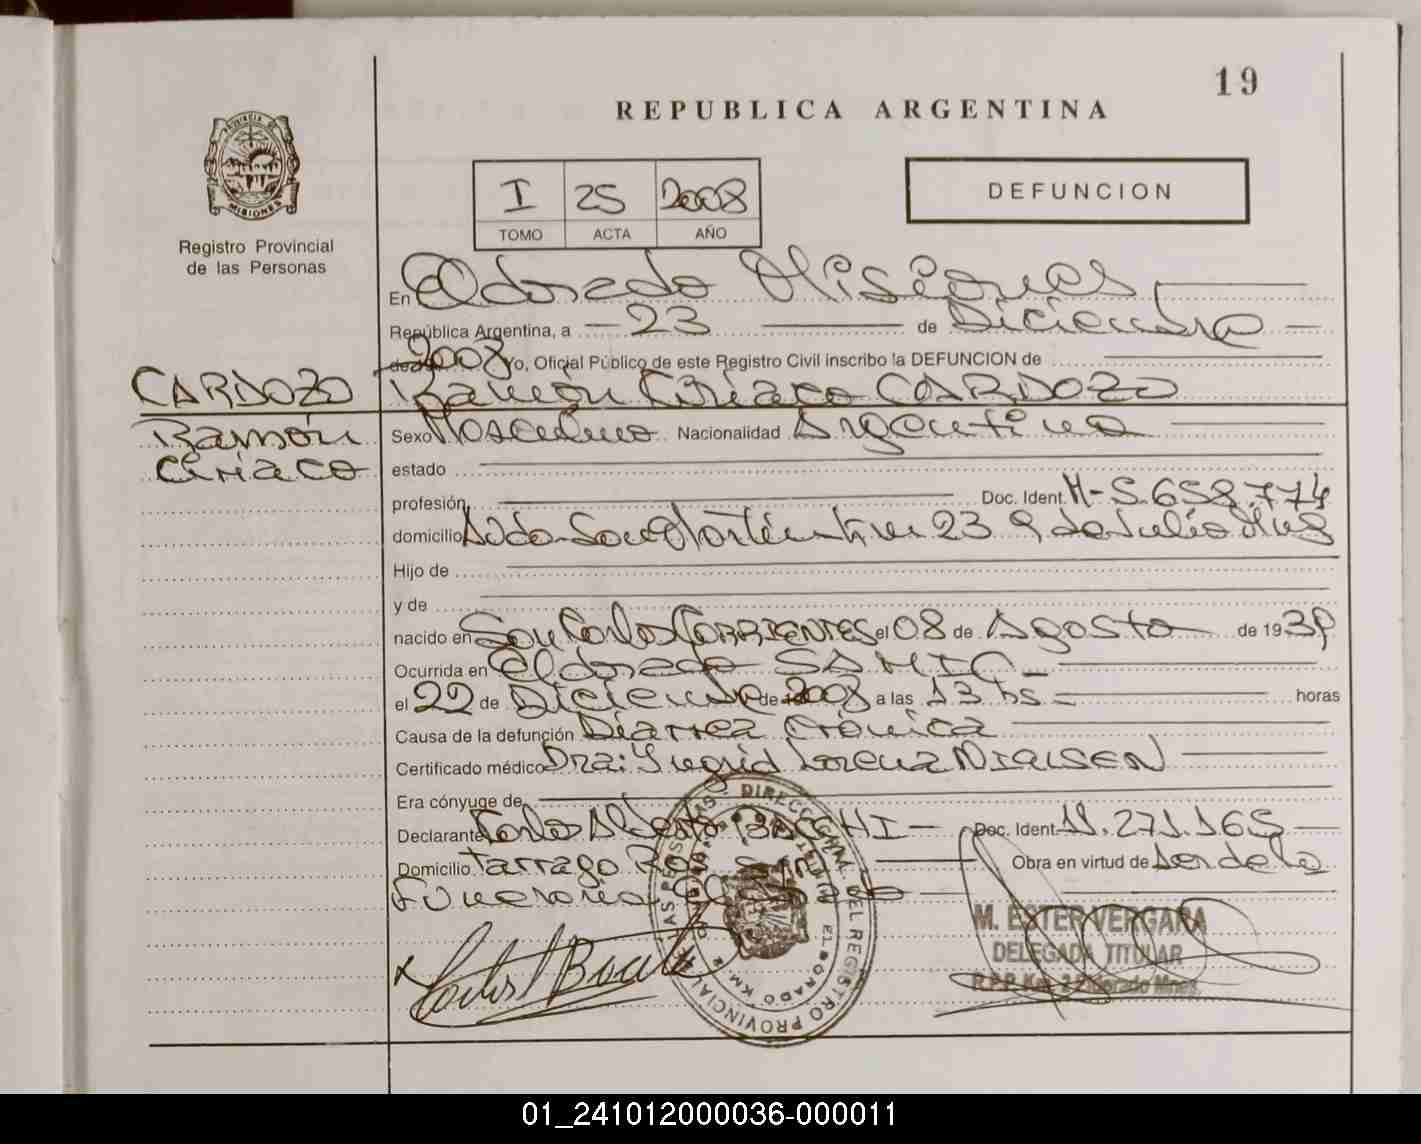 19
REPUBLICA ARGENTINA
PROVINCIA DE
MISIONES
Registro Provincial
de las Personas
I 25 2008
TOMO ACTA AÑO
DEFUNCION
En Eldorado Misiones
República Argentina, a 23 de Diciembre
de 2008 Yo, Oficial Público de este Registro Civil inscribo la DEFUNCION de
CARDOZO Ramón Ciriaco CARDOZO
Ramón Sexo Masculino Nacionalidad Argentina
Ciriaco estado
profesión Doc. Ident. M-5.658.774
domicilio Avda. San Martín km 23 9 de Julio Mnes
Hijo de
y de
nacido en San Carlos CORRIENTES el 08 de Agosto de 1939
Ocurrida en Eldorado SAMIC
el 22 de Diciembre de 2008 a las 13 hs horas
Causa de la defunción Diarrea Crónica
Certificado médico Dra: Ingrid Lorena NIELSEN
Era cónyuge de
Declarante Carlos Alberto BACCHI Doc. Ident. 11.271.165
Domicilio Tarrago Ros Obra en virtud de ser de la
Funeraria
Carlos A Bacchi
DIRECCION GRAL. DEL REGISTRO PROVINCIAL DE LAS PERSONAS
ELDORADO KM. 2
M. ESTER VERGARA
DELEGADA TITULAR
R.P.P. Km. 2 Eldorado Mnes.
01_241012000036-000011